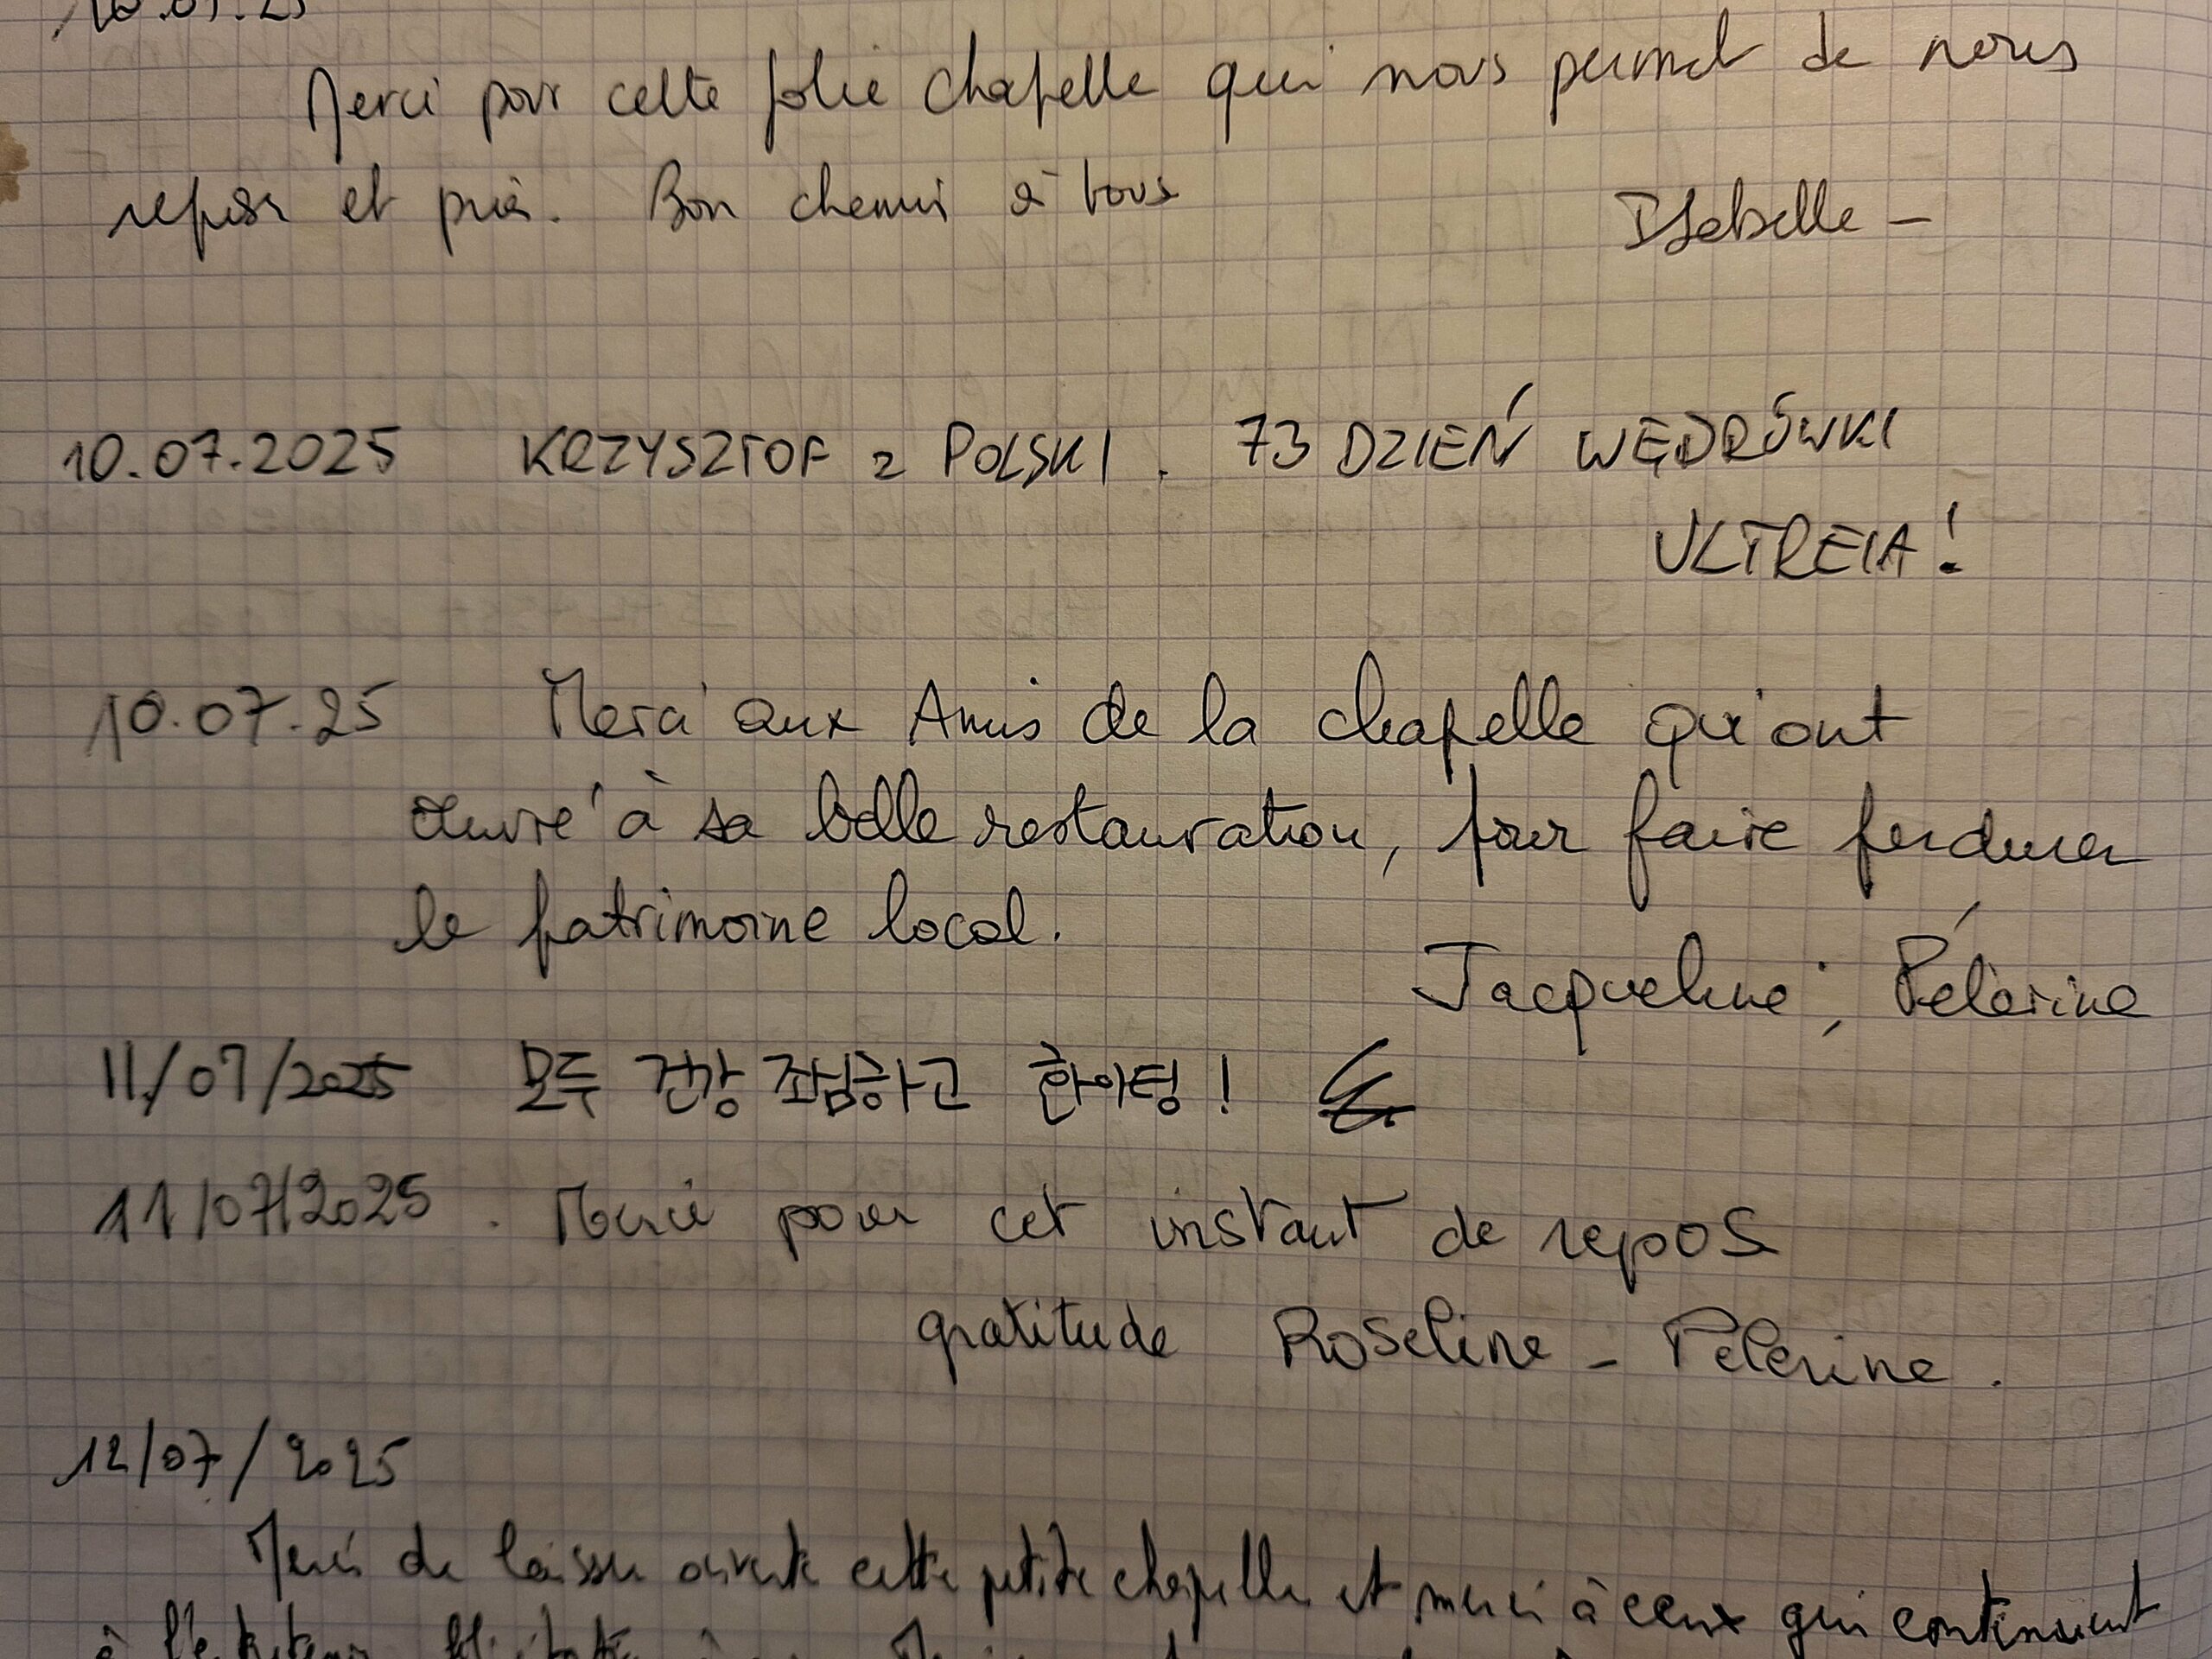 10.07.25
Merci pour cette jolie chapelle qui nous permet de nous
reposer et prier. Bon chemin à tous
Isabelle -
10.07.2025 KRZYSZTOF z POLSKI. 73 DZIEŃ WĘDRÓWKI
ULTREIA!
10.07.25 Merci aux Amis de la chapelle qu'ont
œuvré à sa belle restauration, pour faire perdurer
le patrimoine local.
Jacqueline, Pélerine
11/07/2025 모두 건강 조심하고 화이팅!
11/07/2025. Merci pour cet instant de repos
gratitude Roseline - Pelerine.
12/07/2025
Merci de laisser ouverte cette petite chapelle et merci à ceux qui continuent
à l'entretenir